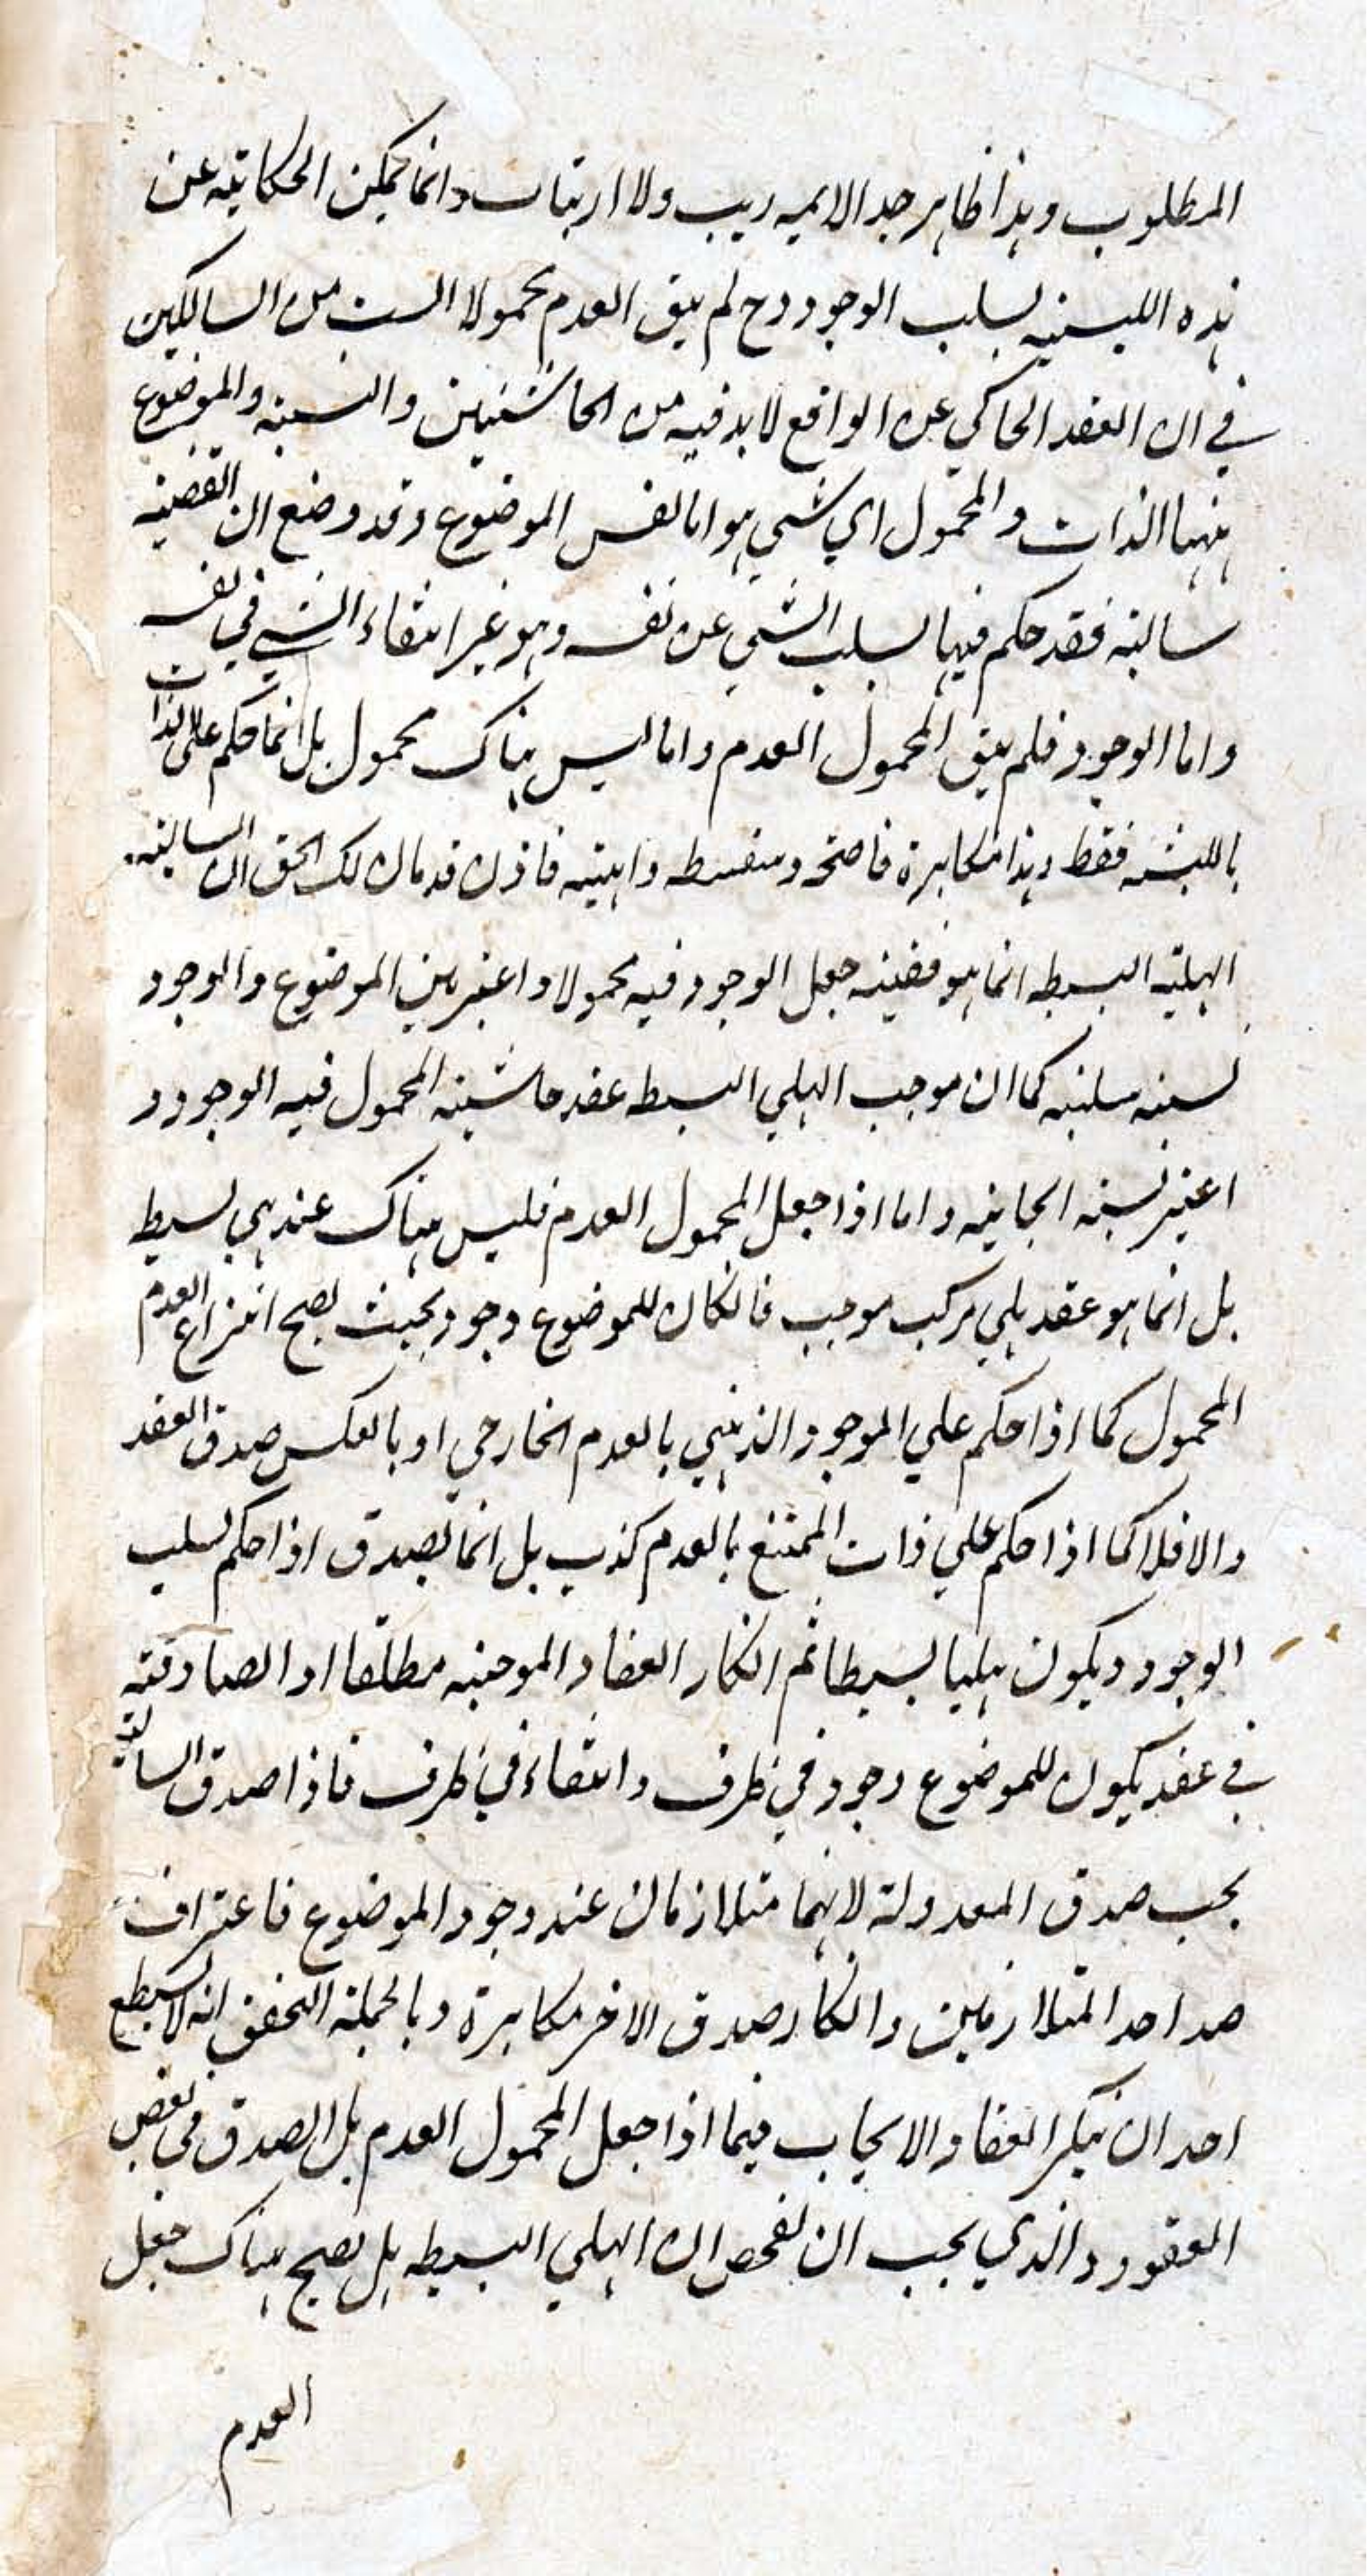 المطلوب وهذا ظاهر جدا لا يريب ولا ارتياب وانما يمكن الحكاية عن
هذه الليسية بسلب الوجود وح لم يبق العدم محمولا الست من السالكين
في ان العقد الحاكي عن الواقع لا بد فيه من الحاشيتين والنسبة والموضوع
ههنا الذات والمحمول اي شي هو اما نفس الموضوع وقد وضع ان القضية
سالبة فقد حكم فيها بسلب الشي عن نفسه وهو غير انتفاء الشي في نفسه
واما الوجود فلم يبق المحمول العدم واما ليس هناك محمول بل انما حكم على الذات
بالليسية فقط وهذا مكابرة فاضحة وسفسطه واهية فاذن قد بان لك الحق ان السالبة
الهلية البسيطه انما هو قضية جعل الوجود فيه محمولا واعتبر بين الموضوع والوجود
نسبة سلبية كما ان موجب الهلي البسيطه عقد حاشية المحمول فيه الوجود و
اعتبر نسبة ايجابية واما اذا جعل المحمول العدم فليس هناك عند هلي بسيط
بل انما هو عقد هلي مركب موجب فان كان للموضوع وجود بحيث يصح انتزاع العدم
المحمول كما اذا حكم علي الموجود الذهني بالعدم الخارجي او بالعكس صدق العقد
والا فلا كما اذا حكم علي ذات الممتنع بالعدم كذب بل انما يصدق اذا حكم بسلب
الوجود ويكون هليا بسيطا ثم انكار انعقاد الموجبة مطلقا او الصادقة
في عقد يكون للموضوع وجود في ظرف وانتفاء في ظرف فاذا صدق السالبة
يجب صدق المعدولة لانهما متلازمان عند وجود الموضوع فاعتراف
صد احد المتلازمين وانكار صدق الاخر مكابرة وبالجملة التحقق انه لا يستطيع
احد ان ينكر انعقاد الايجاب فيما اذا جعل المحمول العدم بل الصدق في بعض
العقود والذي يجب ان يفحص ان الهلي البسيطه هل يصح هناك جعل
العدم